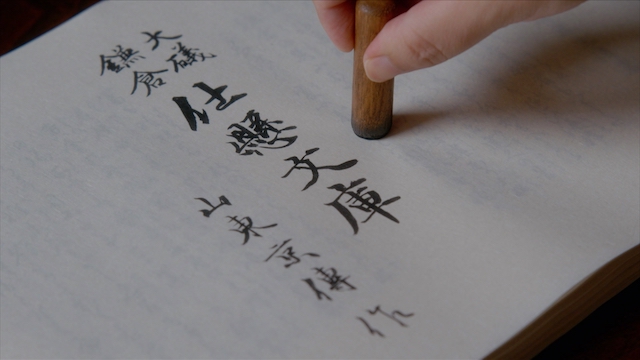 大磯
鎌倉
仕懸文庫
山東京傳作